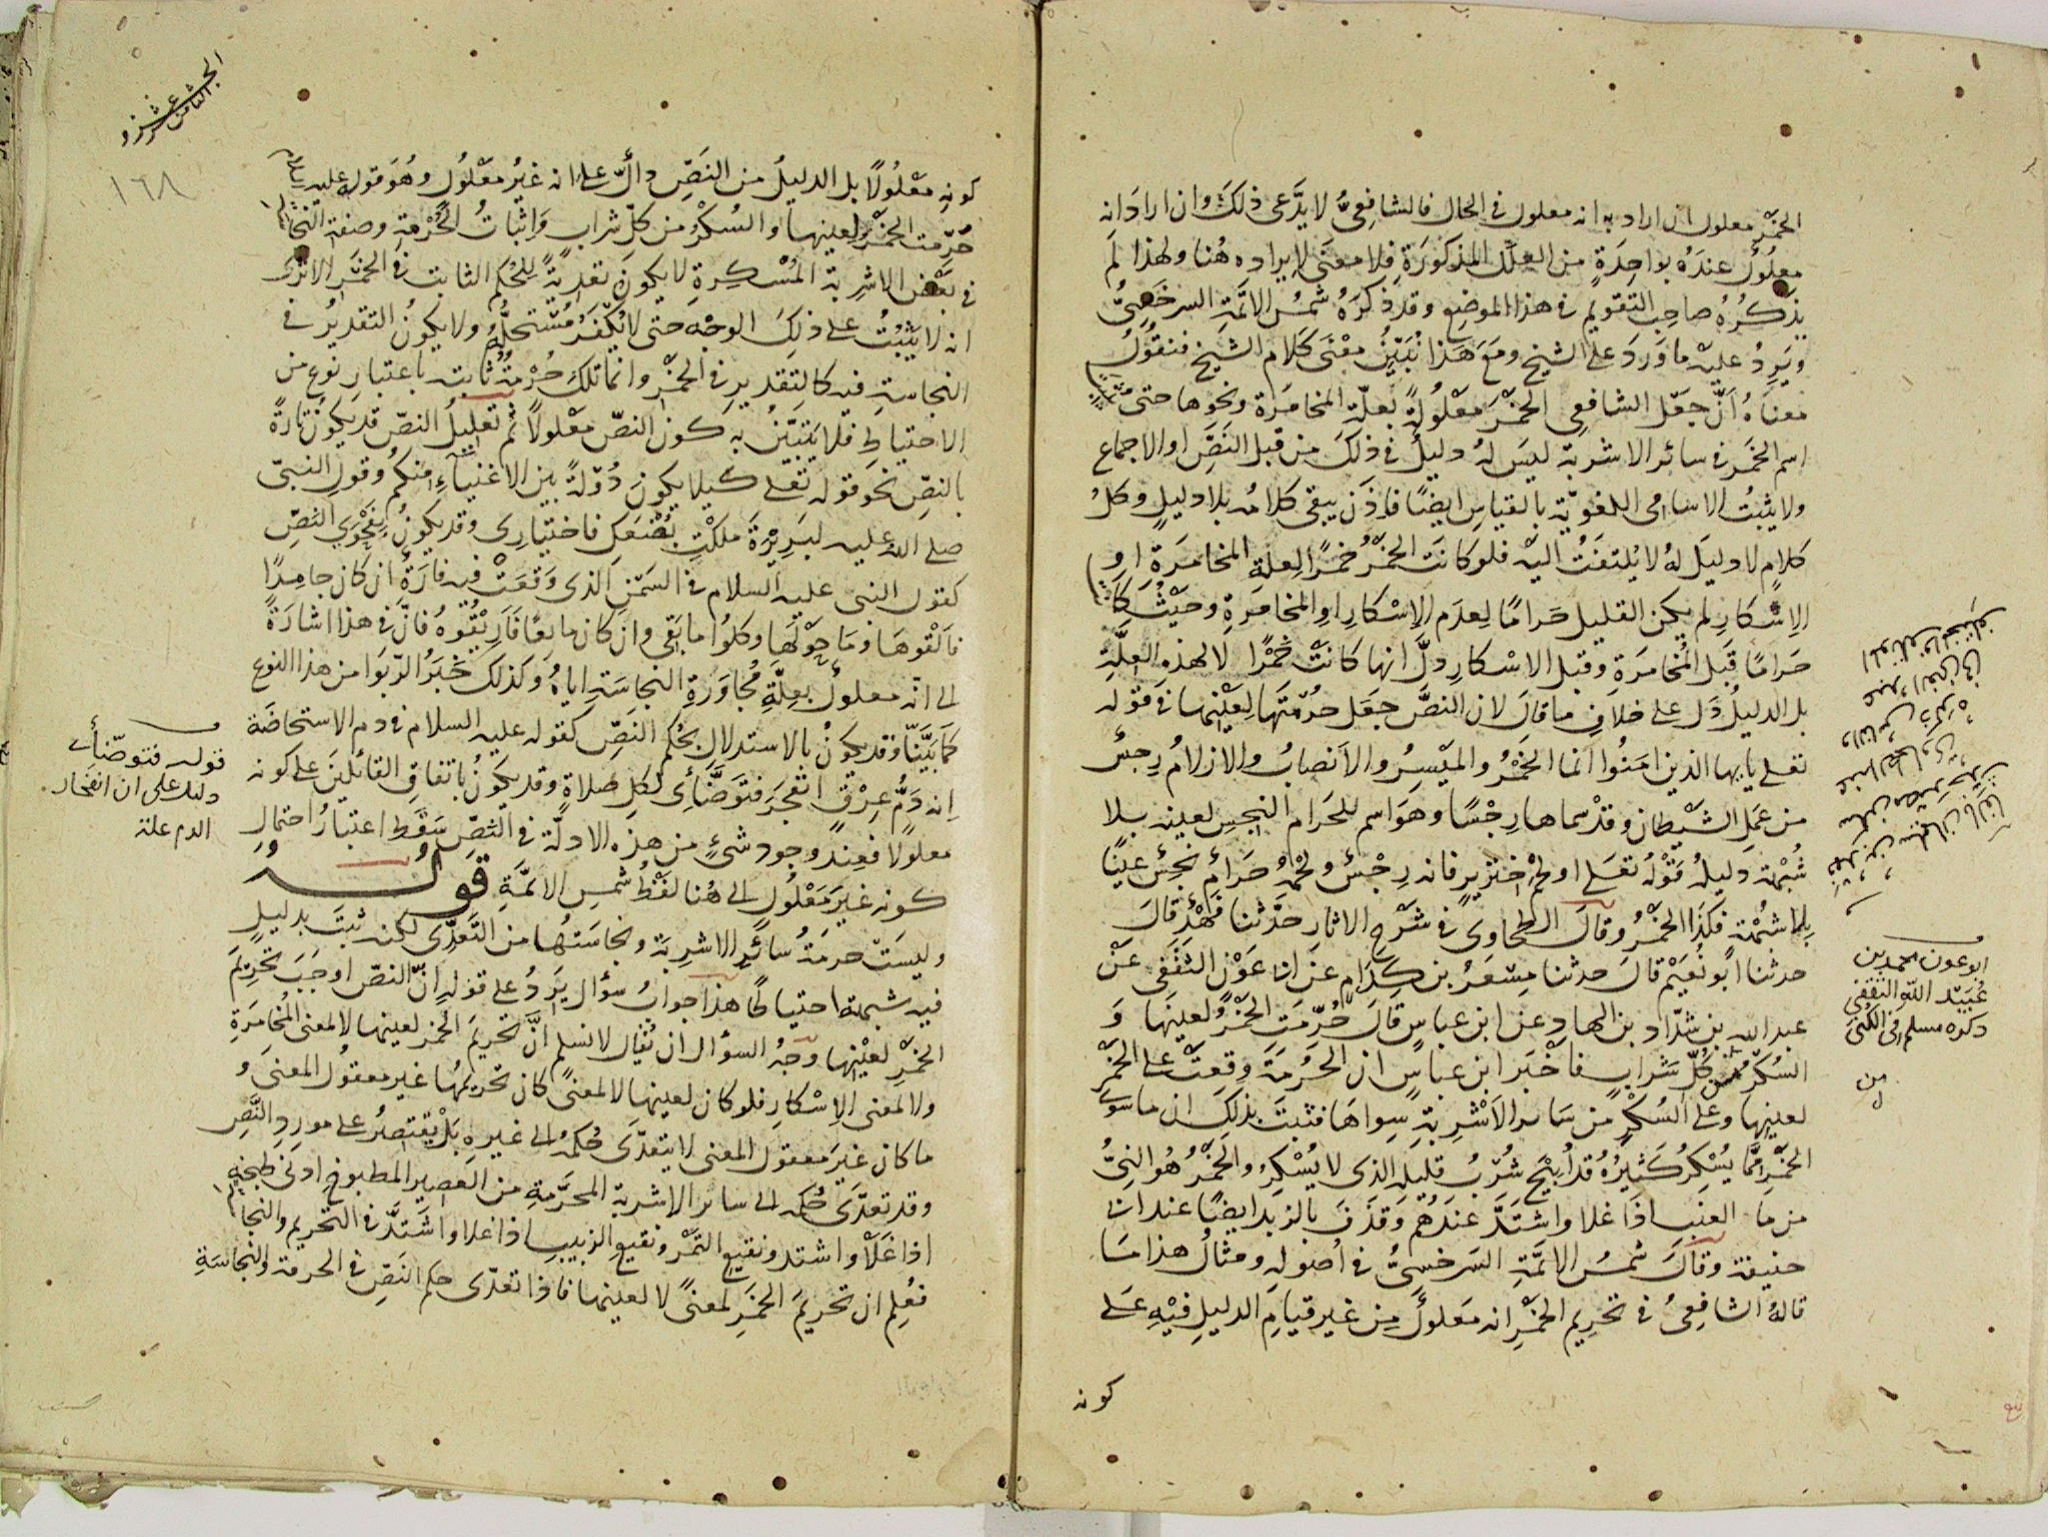 الخمر معلول ان اراد به انه معلول في الحال فالشافعي لا يدعى ذلك وان اراد انه
معلول عنده بواحدة من العلل المذكورة فلا معنى لايراده هنا ولهذا لم
يذكره صاحب التقويم في هذا الموضع وقد ذكره شمس الائمة السرخسي
ويرد عليه ما ورد على الشيخ ومع هذا نبين معنى كلام الشيخ فنقول
معناه ان جعل الشافعي الخمر معلولة بعلة المخامرة ونحوها حتى يثبت
اسم الخمر في سائر الاشربة ليس له دليل في ذلك من قبل النص او الاجماع
ولا يثبت الاسامى اللغوية بالقياس ايضا فاذن يبقى كلامه بلا دليل وكل
كلام لا دليل له لا يلتفت اليه فلو كانت الخمر خمرا لعلة المخامرة او
الاسكار لم يكن القليل حراما لعدم الاسكار او المخامرة وحيث كان
حراما قبل المخامرة وقبل الاسكار دل انها كانت خمرا لا لهذه العلة
بل الدليل دل على خلاف ما قال لان النص جعل حرمتها لعينها في قوله
تعلى يايها الذين امنوا انما الخمر والميسر والانصاب والازلام رجس
من عمل الشيطان وقد سماها رجسا وهو اسم للحرام النجس لعينه بلا
شبهة دليله قوله تعلى او لحم خنزير فانه رجس ولحمه حرام نجس عينا
بلا شبهة فكذا الخمر وقال الطحاوى في شرح الاثار حدثنا فهد قال
حدثنا ابو نعيم قال حدثنا مسعر بن كدام عن ابى عون الثقفي عن
عبد الله بن شداد بن الهاد عن ابن عباس قال حرمت الخمر لعينها و
السكر من كل شراب فاخبر ابن عباس ان الحرمة وقعت على الخمر
لعينها وعلى السكر من سائر الاشربة سواها فثبت بذلك ان ما سوى
الخمر مما يسكر كثيره قد ابيح شرب قليله الذى لا يسكر والخمر هو النى
من ما العنب اذا غلا واشتد عندهم وقذف بالزبد ايضا عند ابى
حنيفة وقال شمس الائمة السرخسي في اصوله ومثال هذا ما
قاله الشافعي في تحريم الخمر انه معلول من غير قيام الدليل فيه على
كونه
ابو عون محمد بن
عبيد الله الثقفي
ذكره مسلم في الكنى
الجزء الثامن عشر
١٦٨
كونه معلولا بل الدليل من النص دال على انه غير معلول وهو قوله عليه السلام
حرمت الخمر لعينها والسكر من كل شراب واثبات الحرمة وصفة النجاسة
في بعض الاشربة المسكرة لا يكون تعدية للحكم الثابت في الخمر الا ترى
انه لا يثبت على ذلك الوجه حتى لا يكفر مستحله ولا يكون التقدير في
النجاسة فيه كالتقدير في الخمر وانما تلك حرمة ثابتة باعتبار نوع من
الاحتياط فلا يتبين به كون النص معلولا ثم تعليل النص قد يكون تارة
بالنص نحو قوله تعلى كيلا يكون دولة بين الاغنياء منكم وقول النبى
صلى الله عليه لبريرة ملكت بضعك فاختيارى وقد يكون بفحوى النص
كقول النبى عليه السلام في السمن الذى وقعت فيه فارة ان كان جامدا
فالقوها وما حولها وكلوا ما بقى وان كان مايعا فاريقوه فان في هذا اشارة
الى انه معلول بعلة مجاورة النجاسة اياه وكذلك خبر الربوا من هذا النوع
كما بينا وقد يكون بالاستدلال بحكم النص كقوله عليه السلام في دم الاستحاضة
انه دم عرق انفجر فتوضائ لكل صلاة وقد يكون باتفاق القائلين على كونه
معلولا فعند وجود شئ من هذه الادلة في النص سقط اعتبار احتمال
كونه غير معلول الى هنا لفظ شمس الائمة قوله
وليست حرمة سائر الاشربة ونجاستها من التعدى لكنه ثبت بدليل
فيه شبهة احتياطا هذا جواب سؤال يرد على قوله ان النص اوجب تحريم
الخمر لعينها وجه السؤال ان يقال لا نسلم ان تحريم الخمر لعينها لا لمعنى المخامرة
ولا لمعنى الاسكار فلو كان لعينها لا لمعنى كان تحريمها غير معقول المعنى و
ما كان غير معقول المعنى لا يتعدى حكمه الى غيره بل يقتصر على مورد النص
وقد تعدى حكمه الى سائر الاشربة المحرمة من العصير المطبوخ ادنى طبخه
اذا غلا واشتد ونقيع التمر ونقيع الزبيب اذا غلا واشتد في التحريم والنجاسة
فعلم ان تحريم الخمر لمعنى لا لعينها فاذا تعدى حكم النص في الحرمة والنجاسة
قوله فتوضائ
دليل على ان انفجار
الدم علة